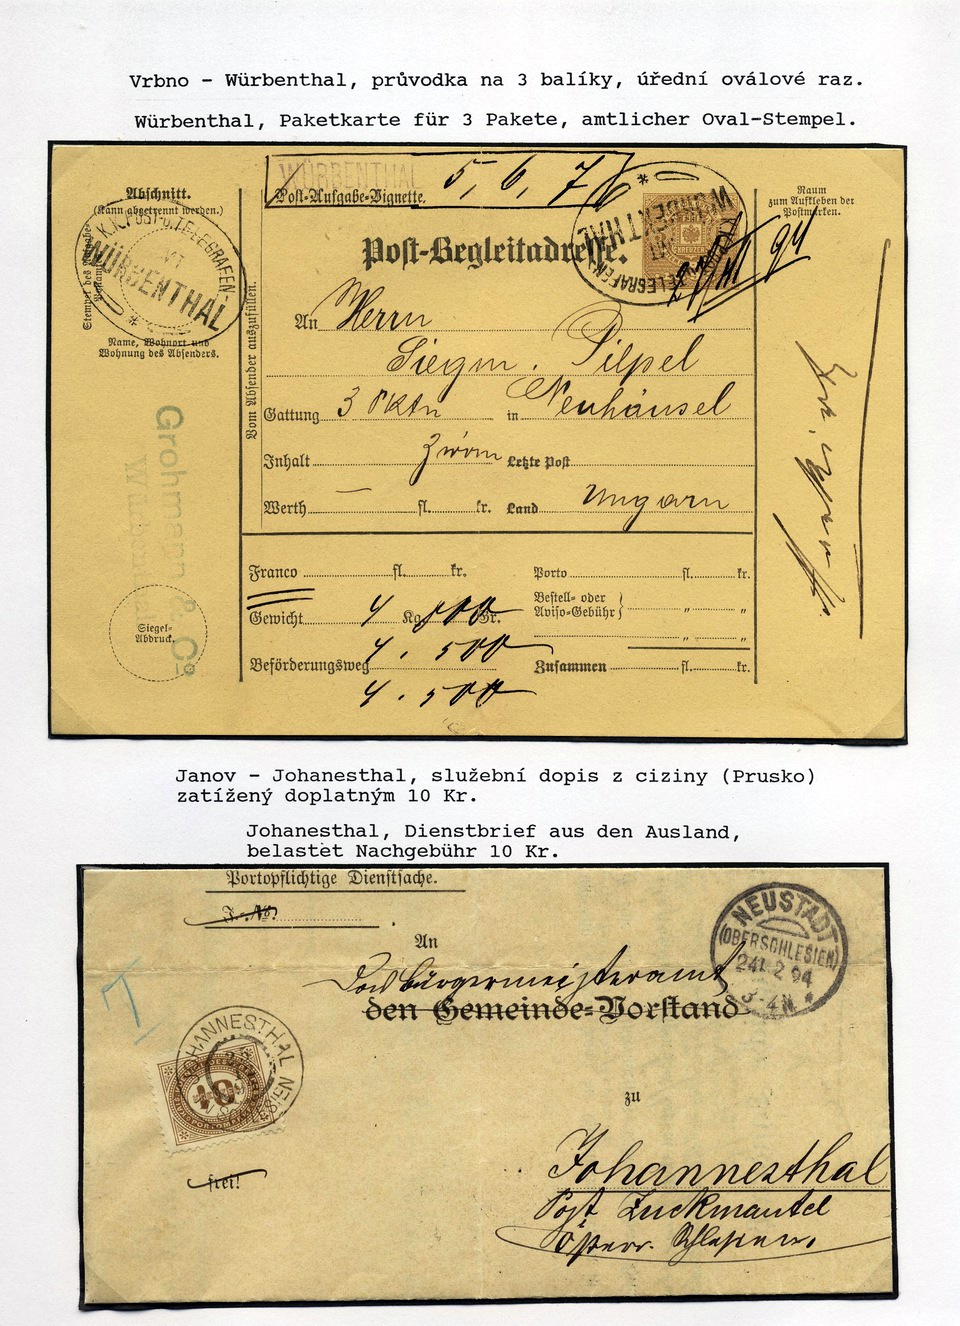 Vrbno - Würbenthal, průvodka na 3 balíky, úřední oválové raz.
Würbenthal, Paketkarte für 3 Pakete, amtlicher Oval-Stempel.
WÜRBENTHAL
5, 6, 7
Post-Aufgabe-Vignette.
Abschnitt.
(Kann abgetrennt werden.)
K.K. POST- u. TELEGRAFEN-AMT
WÜRBENTHAL
Name, Wohnort und
Wohnung des Absenders.
Vom Absender auszufüllen.
Post-Begleitadresse.
K.K. POST- u. TELEGRAFEN-AMT
WÜRBENTHAL
94
Raum
zum Aufkleben der
Postmarken.
An Herrn
Siegm. Pilpel
Gattung 3 Pktn in Neuhäusel
Inhalt Zwirn Letzte Post
Werth — fl. kr. Land Ungarn
Grohmann & Co
Würbenthal
Siegel-
Abdruck.
Franco fl. kr.
Gewicht 4 Kg. 500 Gr.
4. 500
Beförderungsweg
4. 500
Porto fl. kr.
Bestell- oder
Aviso-Gebühr } " "
" "
Zusammen fl. kr.
Janov - Johanesthal, služební dopis z ciziny (Prusko)
zatížený doplatným 10 Kr.
Johanesthal, Dienstbrief aus den Ausland,
belastet Nachgebühr 10 Kr.
Portopflichtige Dienstsache.
J.-No.
An
Das Bürgermeisteramt
den Gemeinde-Vorstand
NEUSTADT
(OBERSCHLESIEN)
24. 2 94
3-4N *
T
JOHANNESTHAL
10
zu
frei!
Johannesthal
Post Zuckmantel
Österr. Schlesien.